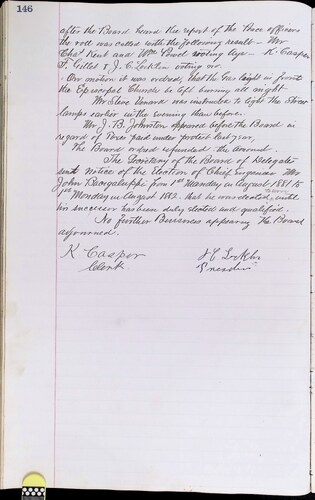 146
after the Board heard the report of the Race officers
the roll was called with the following result – Mr
Chas Kent and Wm Powel voting Aye – K. Casper
T. Gillet & J. C. Locklin voting no.
On motion it was ordered, that the Gas light in front
the Episcopal Church be left burning all night.
Mr Steve Vanard was instructed to light the Street
lamps earlier in the evening than before.
Mr J. B. Johnston appeared before the Board in
regard of paid under protest last year.
The Board refused refunded the amount.
The Secretary of the Board of Delegate
sent notice of the Election of Chief Engineer Mr
John Bacigaluppi from 1st Monday in August 1881 to
1st Monday in August 1882 that he was elected, until
his successor has been duly elected and qualified.
No further Business appearing The Board
adjourned.
K Casper J C Locklin
Clerk President